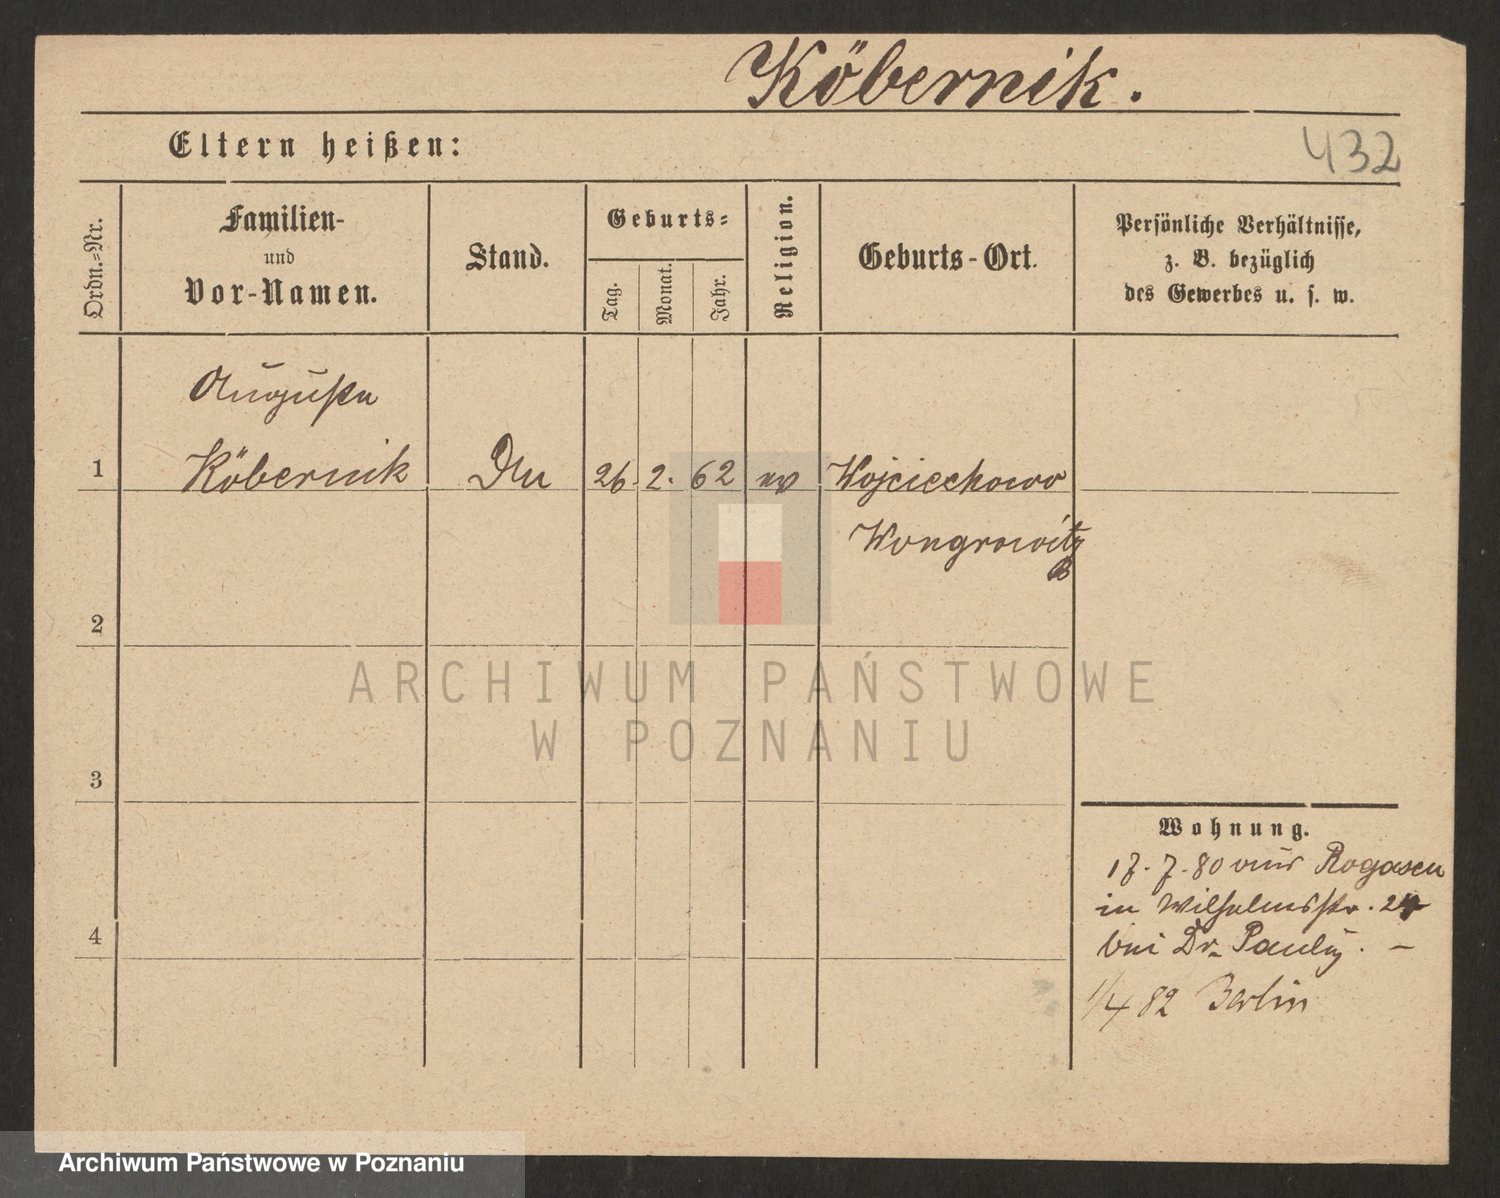 Köbernik.
Eltern heißen:
432
Ordn.=Nr.
Familien-
und
Vor-Namen.
Stand.
Geburts=
Tag.
Monat.
Jahr.
Religion.
Geburts-Ort.
Persönliche Verhältnisse,
z. B. bezüglich
des Gewerbes u. s. w.
Auguste
1 Köbernik 26. 2. 62 ev Wojciechowo
Wongrowitz
2
3
4
Wohnung.
17. 7. 80 aus Rogasen
in Wilhelmsstr. 24
bei Dr. Pauly. –
1/4 82 Berlin
ARCHIWUM PAŃSTWOWE
W POZNANIU
Archiwum Państwowe w Poznaniu